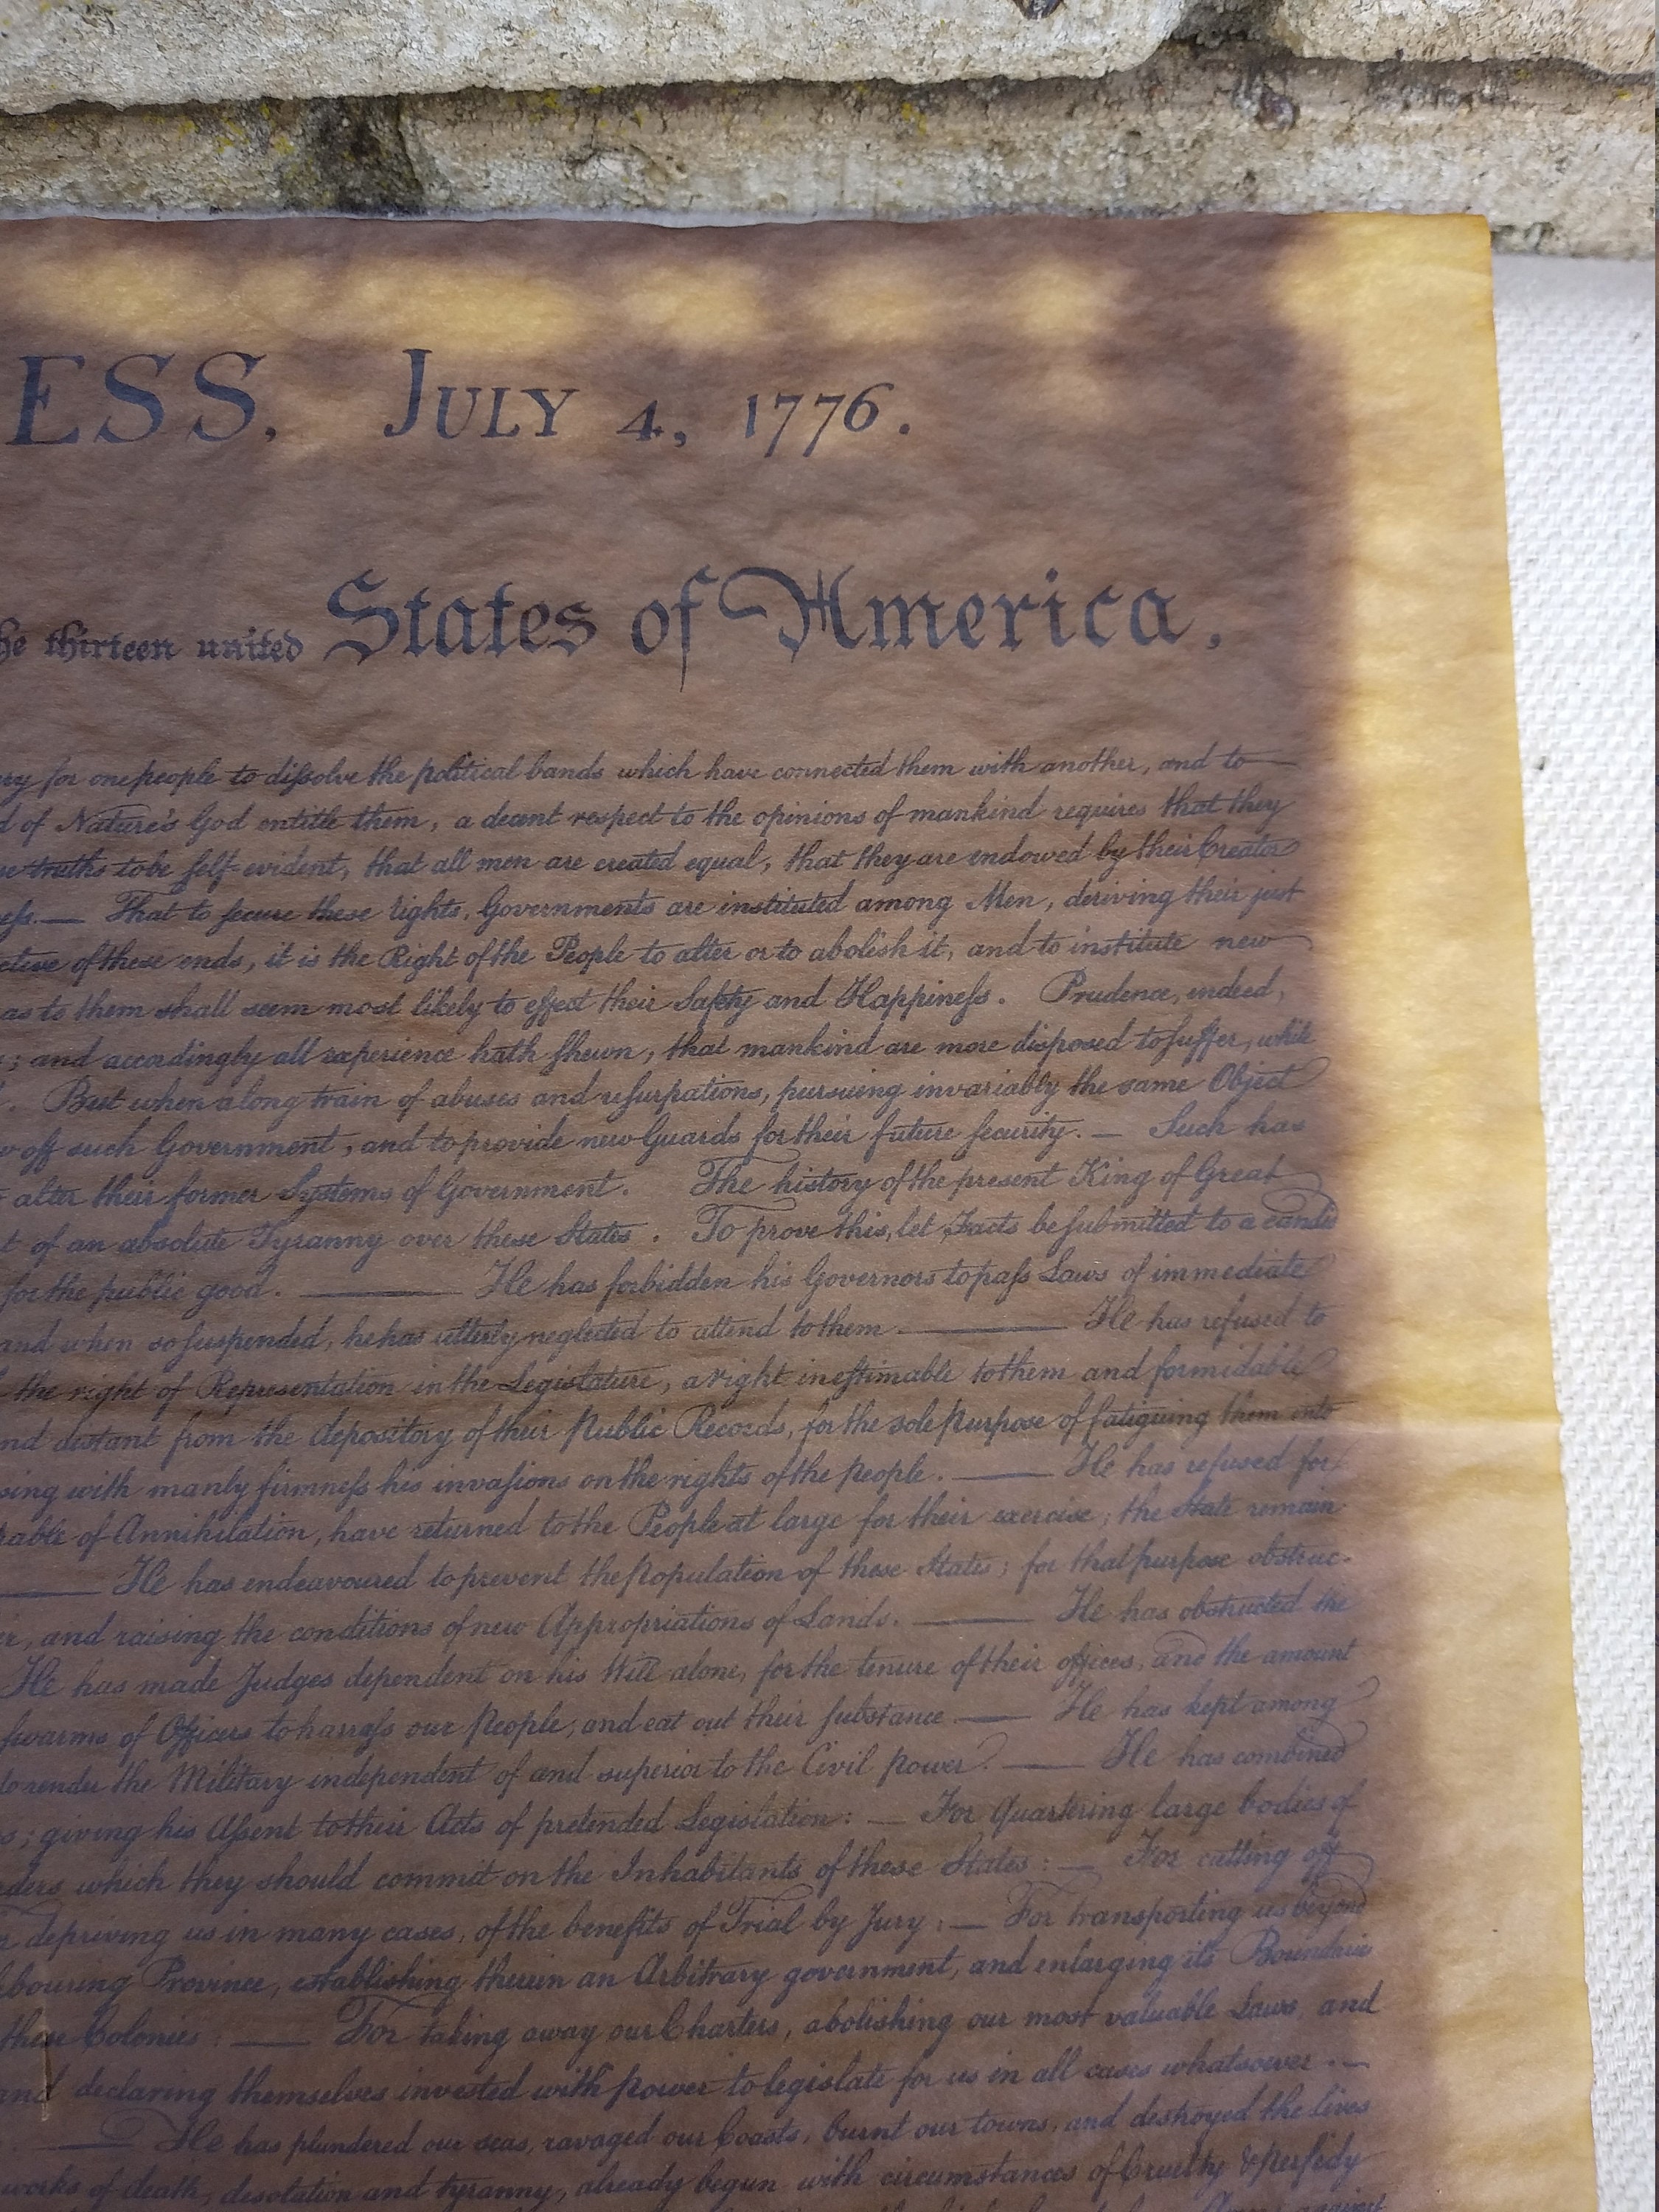 ESS, JULY 4, 1776.
he thirteen united States of America,
ry for one people to dissolve the political bands which have connected them with another, and to
d of Nature's God entitle them, a decent respect to the opinions of mankind requires that they
se truths to be self-evident, that all men are created equal, that they are endowed by their Creator
ess. — That to secure these rights, Governments are instituted among Men, deriving their just
ctive of these ends, it is the Right of the People to alter or to abolish it, and to institute new
as to them shall seem most likely to effect their Safety and Happiness. Prudence, indeed,
; and accordingly all experience hath shewn, that mankind are more disposed to suffer, while
. But when a long train of abuses and usurpations, pursuing invariably the same Object
w off such Government, and to provide new Guards for their future security. — Such has
alter their former Systems of Government. The history of the present King of Great
t of an absolute Tyranny over these States. To prove this, let Facts be submitted to a candid
for the public good. — He has forbidden his Governors to pass Laws of immediate
and when so suspended, he has utterly neglected to attend to them — He has refused to
the right of Representation in the Legislature, a right inestimable to them and formidable
nd distant from the depository of their Public Records, for the sole purpose of fatiguing them into
sing with manly firmness his invasions on the rights of the people. — He has refused for
pable of Annihilation, have returned to the People at large for their exercise; the State remain
— He has endeavoured to prevent the population of these States; for that purpose obstruc-
er, and raising the conditions of new Appropriations of Lands. — He has obstructed the
He has made Judges dependent on his Will alone, for the tenure of their offices, and the amount
swarms of Officers to harrass our People, and eat out their substance — He has kept among
to render the Military independent of and superior to the Civil power. — He has combined
s; giving his Assent to their Acts of pretended Legislation: — For quartering large bodies of
rders which they should commit on the Inhabitants of these States: — For cutting off
r depriving us in many cases, of the benefits of Trial by Jury: — For transporting us beyond
bouring Province, establishing therein an Arbitrary government, and enlarging its Boundaries
these Colonies: — For taking away our Charters, abolishing our most valuable Laws, and
and declaring themselves invested with power to legislate for us in all cases whatsoever. —
— He has plundered our seas, ravaged our Coasts, burnt our towns, and destroyed the lives
works of death, desolation and tyranny, already begun with circumstances of Cruelty & perfidy
against